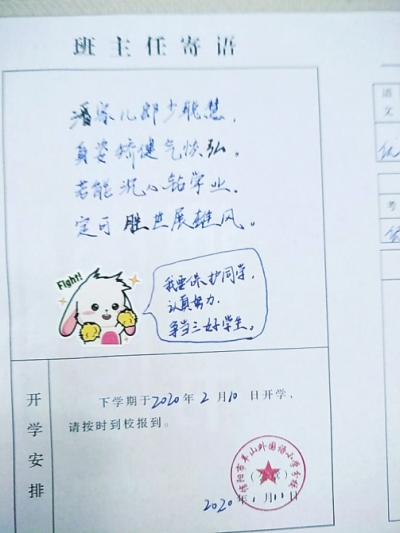 班主任寄语
潘家儿郎少聪慧,
身姿矫健气恢弘。
若能沉心钻学业,
定可胜其展雄风。
Fight!
我要保护同学,
认真努力,
争当三好学生。
语
文
考
开学安排
下学期于2020年2月10日开学,
请按时到校报到。
2020年1月11日